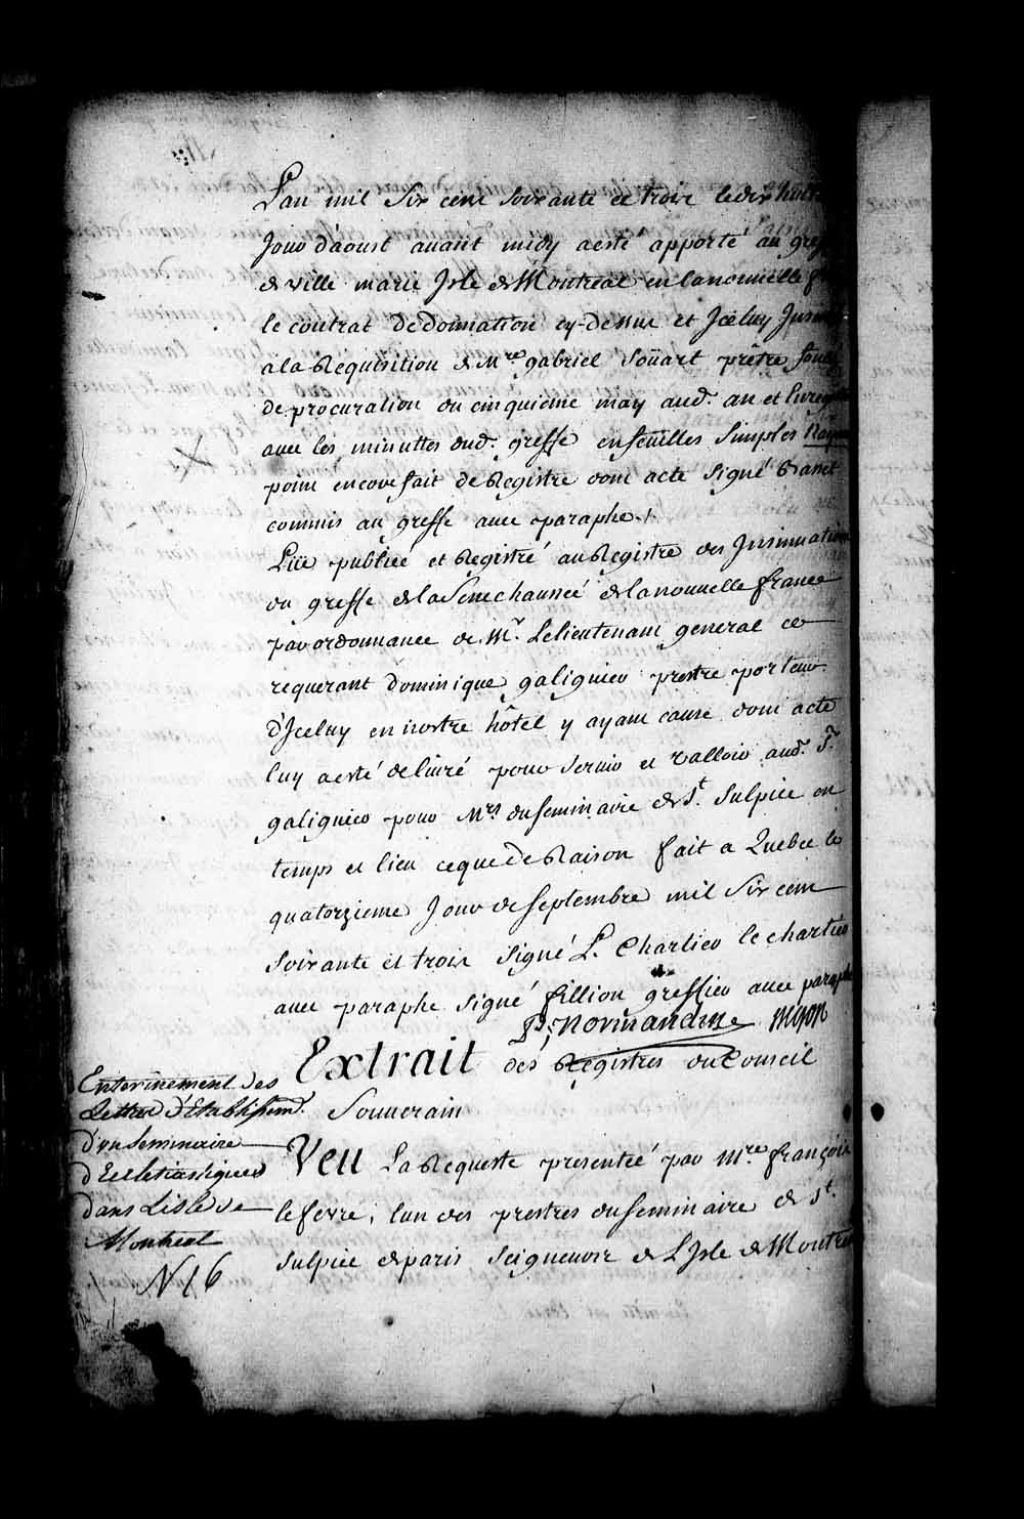 L'an mil Six cens Soixante et trois le dix huit
Jour d'aoust auant midy a esté apporté au greffe
de Ville marie Isle de Montreal en la nouuelle
le contrat de donnation cy-dessus et Iceluy
a la Requisition de Mre gabriel Soüart prêtre
de procuration du cinquieme may aud. an et
auec les minuttes dud. greffe en feuilles Simples
point encore fait de Registre dont acte Signé Basset
commis au greffe auec paraphe./.
Lüe publiée et Registré au Registre des Jnsinuations
du greffe de la Senechaussée de la nouuelle france
par ordonnance de Mr. Le lieutenant general ce
requerant dominique galiguier prestre porteur
d'Iceluy en nostre hôtel y ayant cause dont acte
luy a esté deliuré pour Seruir et Valloir aud. Sr.
galiguier pour Mrs. du Seminaire de St. Sulpice en
temps et lieu ce que de Raison fait a Quebec le
quatorzieme Jour de Septembre mil Six cent
Soixante et trois Signé L. Chartier le chartier
auec paraphe Signé fillion greffier auec paraphe
P. Normandin
Extrait des Registres du Conseil
Souuerain
Enterinement des
Lettres d'Etablissemt.
d'vn Seminaire
d'Ecclesiastiques
dans L'isle de
Montreal
N 16
Veu La Requeste presentée par Mre. françois
lefevre, l'un des prestres du Seminaire de St.
Sulpice de paris Seigneurs de L'Isle de Montreal